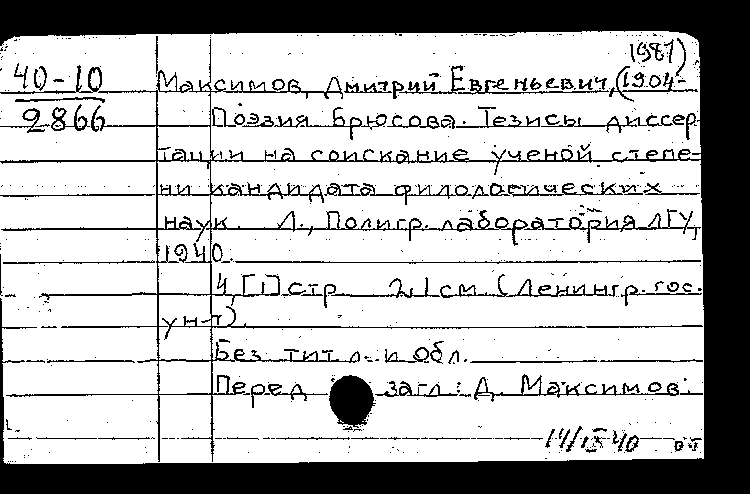 1987)
40-10
2866
Максимов, Дмитрий Евгеньевич, (1904-
Поэзия Брюсова. Тезисы диссер
тации на соискание ученой степе-
ни кандидата филологических
наук. Л., Полигр. лаборатория ЛГУ,
1940.
4, [1] стр. 21 см. (Ленингр. гос.
ун-т).
Без тит. л. и обл.
Перед загл.: Д. Максимов.
14/IX 40